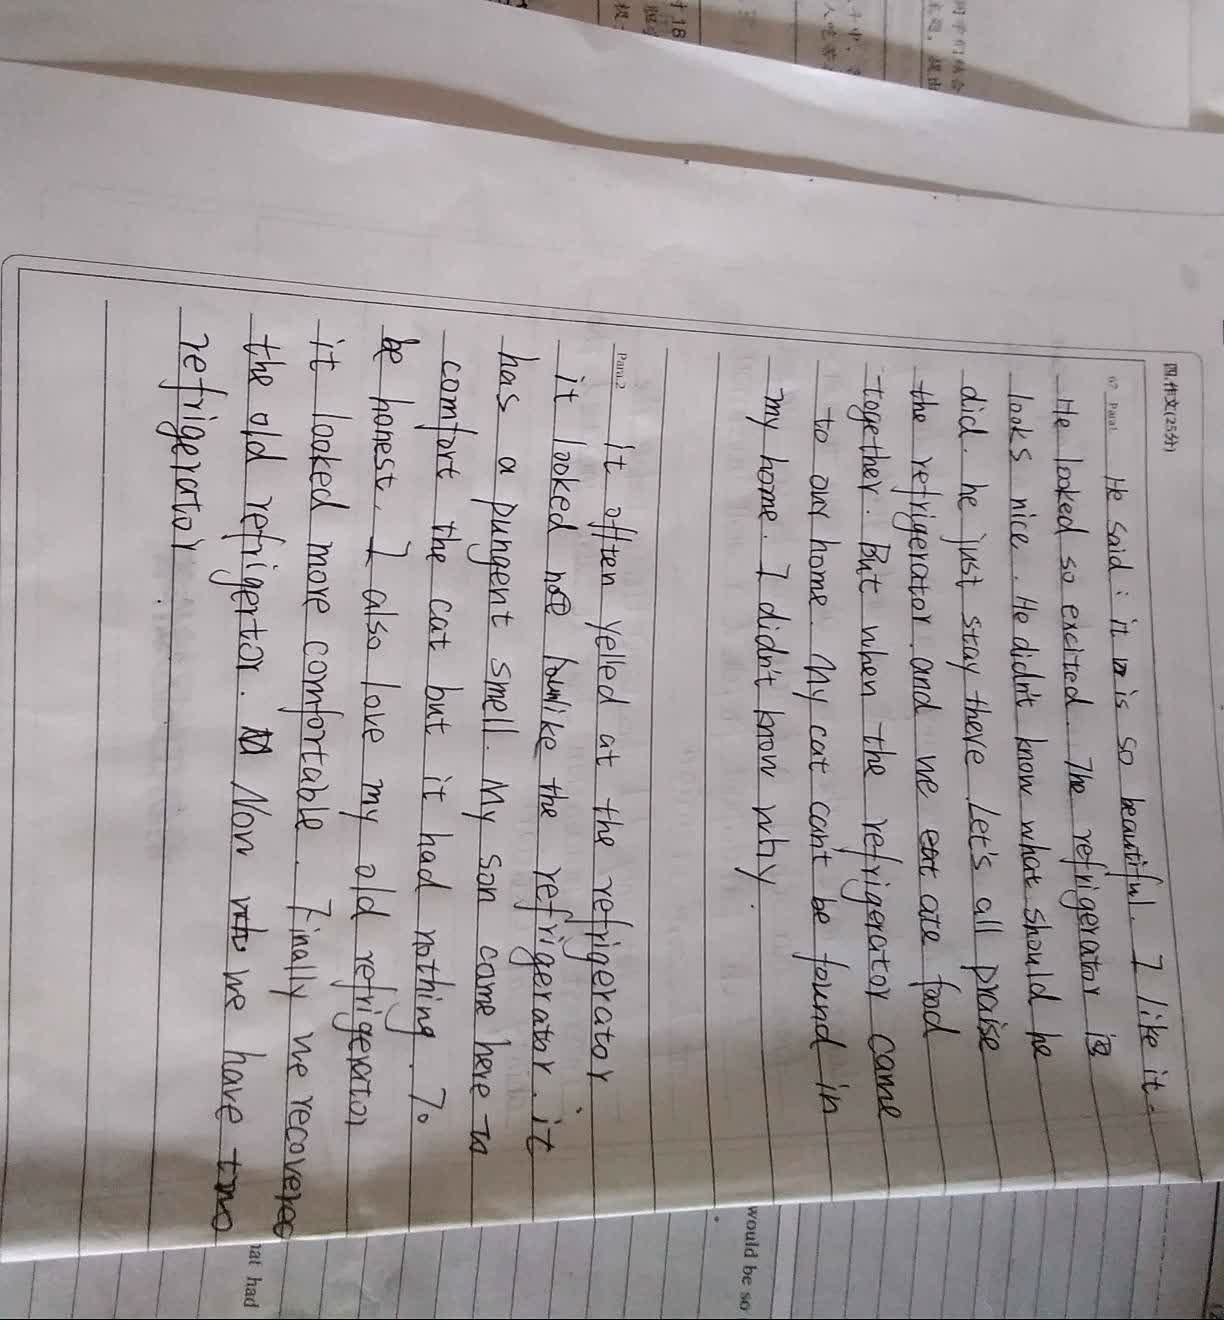 四.作文(25分)
67. Para1 He said : it is so beautiful. I like it.
He looked so excited. The refrigerator is
looks nice. He didn't know what should he
did. he just stay there Let's all praise
the refrigerator and we eat ate food
together. But when the refrigerator came
to our home. My cat can't be found in
my home. I didn't know why.
Para2 it often yelled at the refrigerator
it looked not like the refrigerator. it
has a pungent smell. My son came here to
comfort the cat but it had nothing. To
be honest, I also love my old refrigerator
it looked more comfortable. Finally we recovered
the old refrigertor. Now we have two
refrigerator.
would be so
hat had